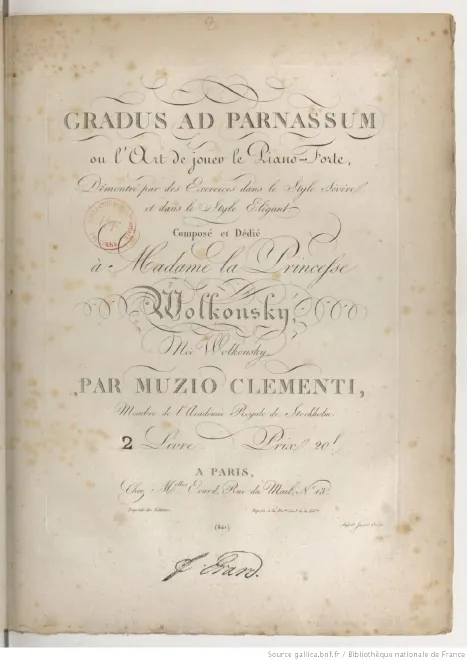 GRADUS AD PARNASSUM
ou l'Art de jouer le Piano-Forte,
Démontré par des Exercices dans le Style Sévère
et dans le Style Elégant
Composé et Dédié
à Madame la Princesse
Wolkonsky,
Née Wolkonsky
PAR MUZIO CLEMENTI,
Membre de l'Académie Royale de Stockholm
2 Livre Prix 20f
A PARIS,
Chez Melles Erard, Rue du Mail, No 13
Propriété des Editeurs
(840)
Erard
Source gallica.bnf.fr / Bibliothèque nationale de France